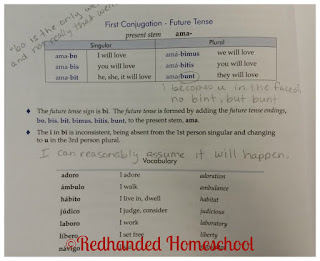 "bo is the only we
and not really that weir
First Conjugation - Future Tense
present stem ama-
Singular Plural
ama-bo I will love amá-bimus we will love
ama-bis you will love amá-bitis you will love
ama-bit he, she, it will love ama-bunt they will love
I becomes u in the faced
no bint, but bunt
◆ The future tense sign is bi. The future tense is formed by adding the future tense endings,
bo, bis, bit, bimus, bitis, bunt, to the present stem, ama.
◆ The i in bi is inconsistent, being absent from the 1st person singular and changing
to u in the 3rd person plural.
I can reasonably assume it will happen.
Vocabulary
adoro I adore adoration
ámbulo I walk ambulance
hábito I live in, dwell habitat
júdico I judge, consider judicious
laboro I work laboratory
líbero I set free liberty
návigo
©Redhanded Homeschool